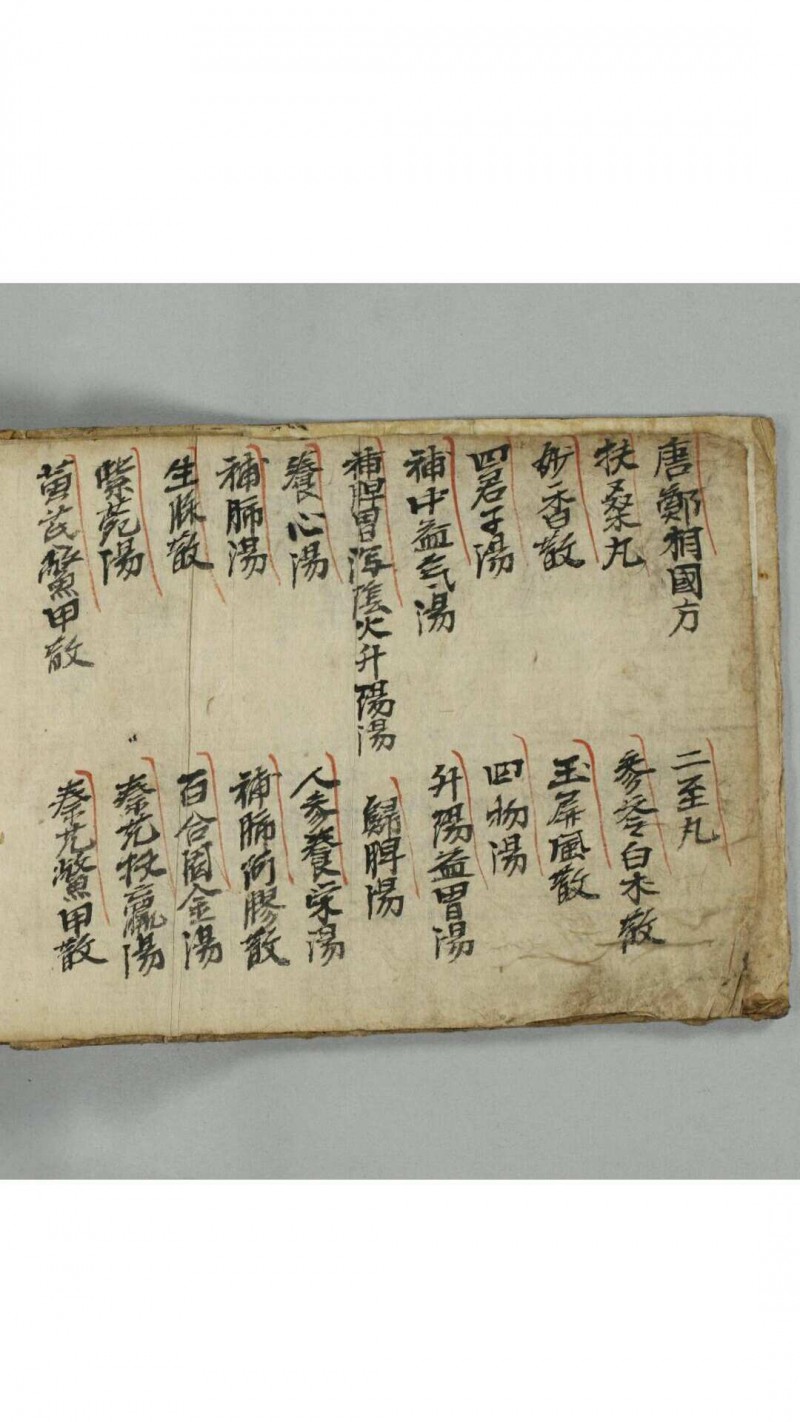 唐鄭相國方
二至丸
扶桑丸
參苓白朮散
妙香散
玉屏風散
四君子湯
四物湯
補中益气湯
升陽益胃湯
補脾胃瀉陰火升陽湯
歸脾湯
養心湯
人參養荣湯
補肺湯
補肺阿膠散
生脉散
百合固金湯
紫菀湯
秦艽扶羸湯
黄芪鱉甲散
秦艽鱉甲散